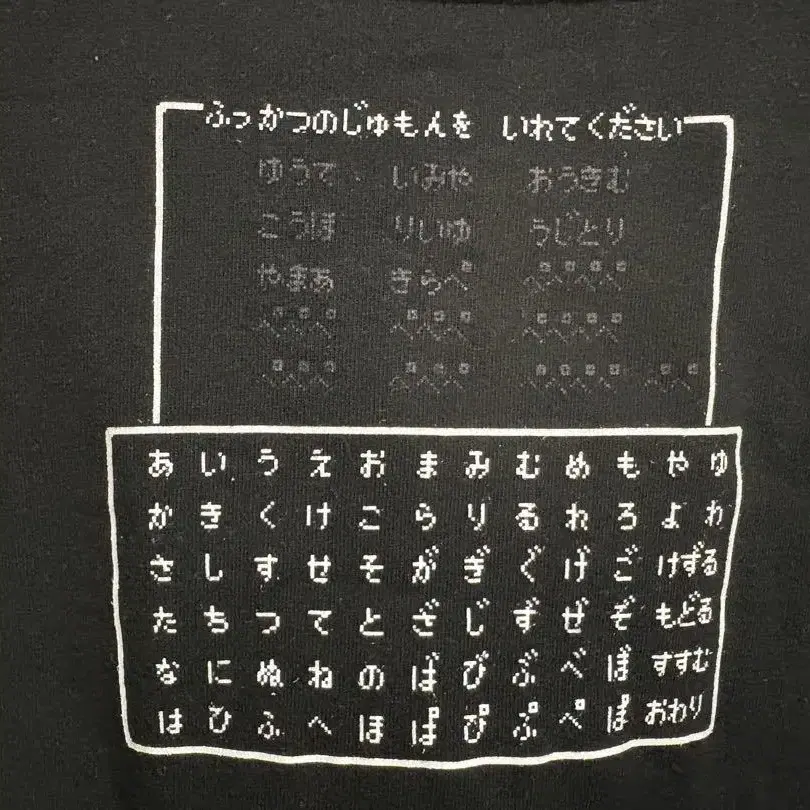 ふっかつのじゅもんを いれてください
ゆうて いみや おうきむ
こうほ りいゆ うじとり
やまあ きらぺ ぺぺぺぺ
ぺぺぺ ぺぺぺ ぺぺぺぺ
ぺぺぺ ぺぺぺ ぺぺぺぺ ぺぺ
あ い う え お ま み む め も や ゆ
か き く け こ ら り る れ ろ よ わ
さ し す せ そ が ぎ ぐ げ ご けずる
た ち つ て と ざ じ ず ぜ ぞ もどる
な に ぬ ね の ば び ぶ べ ぼ すすむ
は ひ ふ へ ほ ぱ ぴ ぷ ぺ ぽ おわり